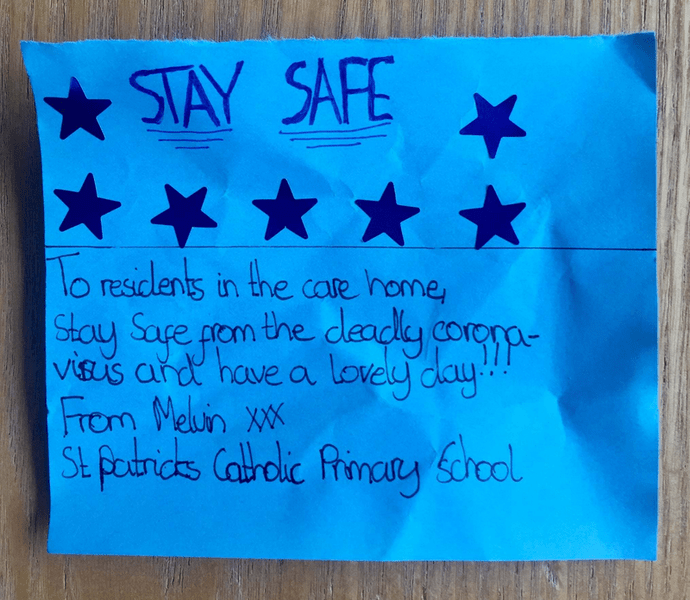 STAY SAFE
To residents in the care home,
Stay Safe from the deadly corona-
virus and have a lovely day!!!
From Melvin xxx
St Patricks Catholic Primary School